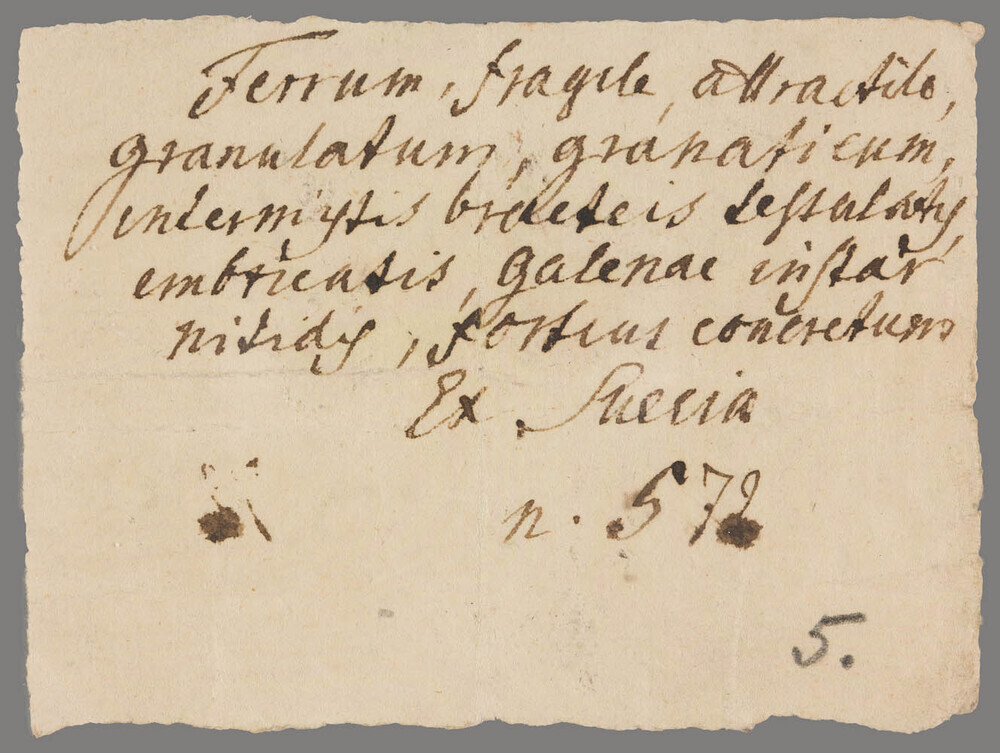 Ferrum, fragile, attractile,
granulatum, granaticum,
intermystis bracteis tessulatis,
embricatis, galenae instar
nitidis, fortius concretum
Ex Suecia
n. 572
5.